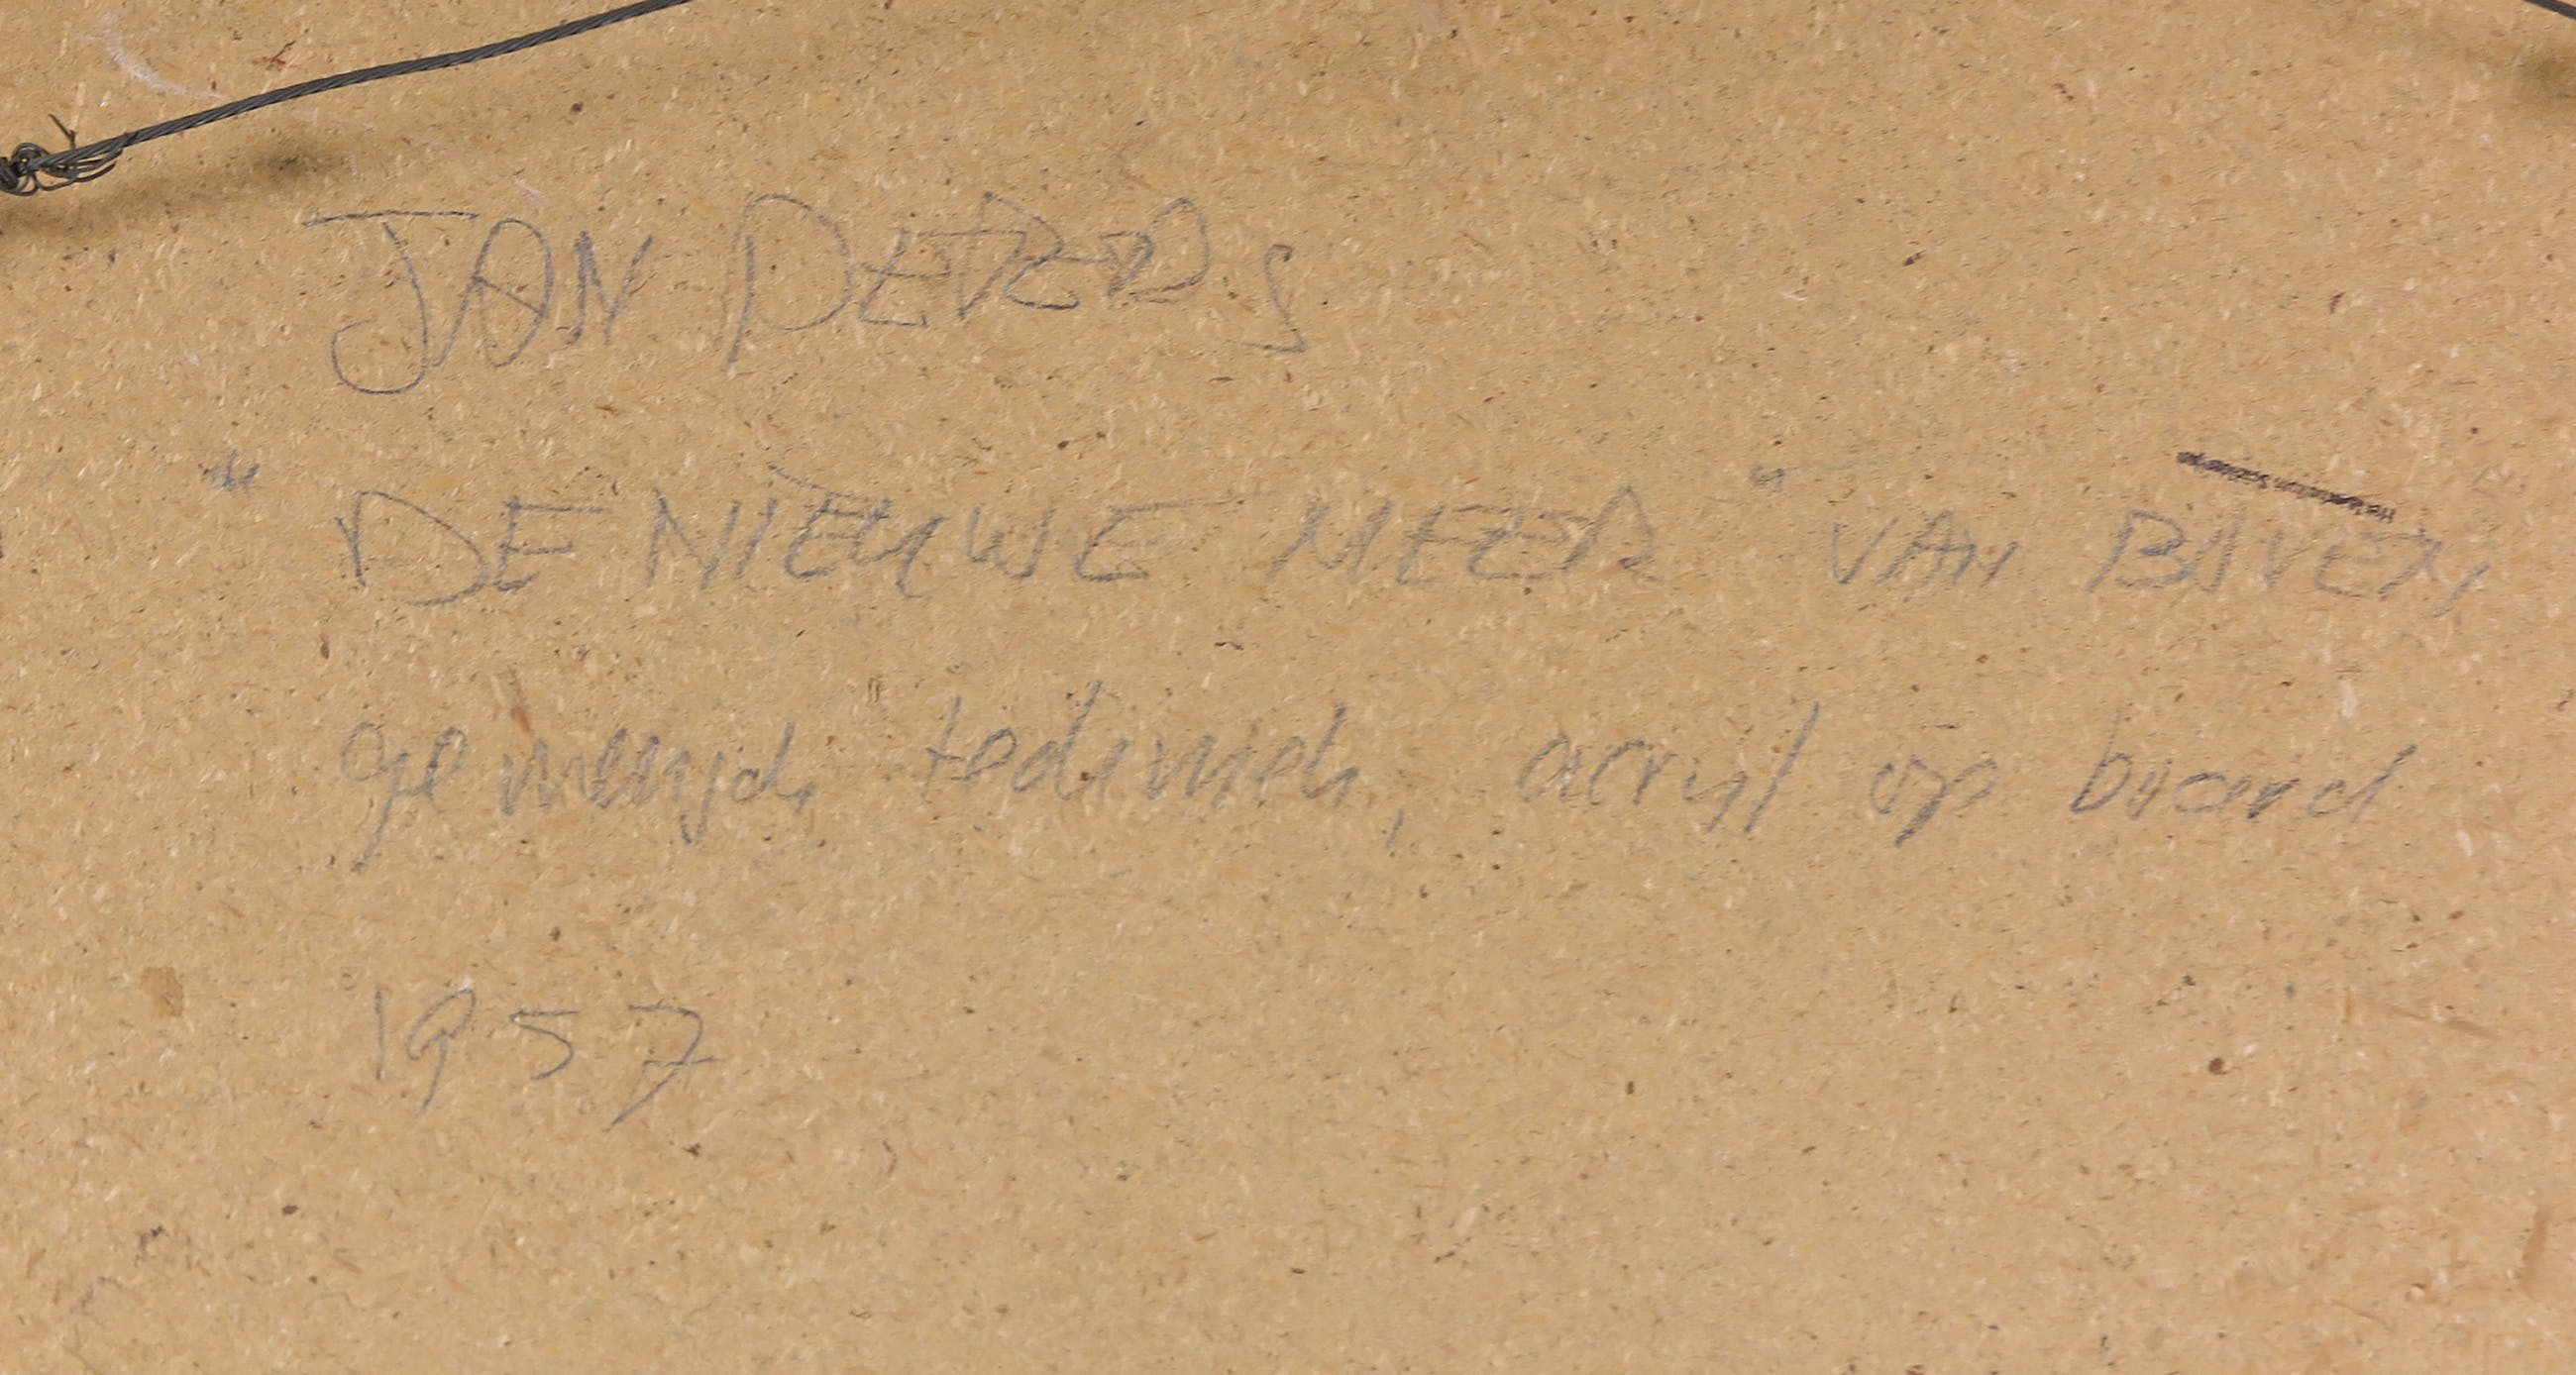 JAN PETERS
"DE NIEUWE MEER" VAN BAVEN,
gemengde techniek, acryl op board
1957